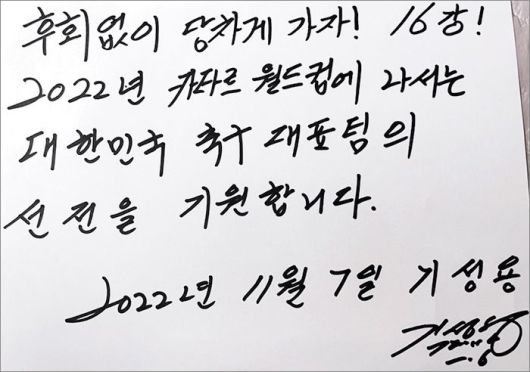 후회없이 당차게 가자! 16강!
2022년 카타르 월드컵에 나서는
대한민국 축구 대표팀의
선전을 기원합니다.
2022년 11월 7일 기성용